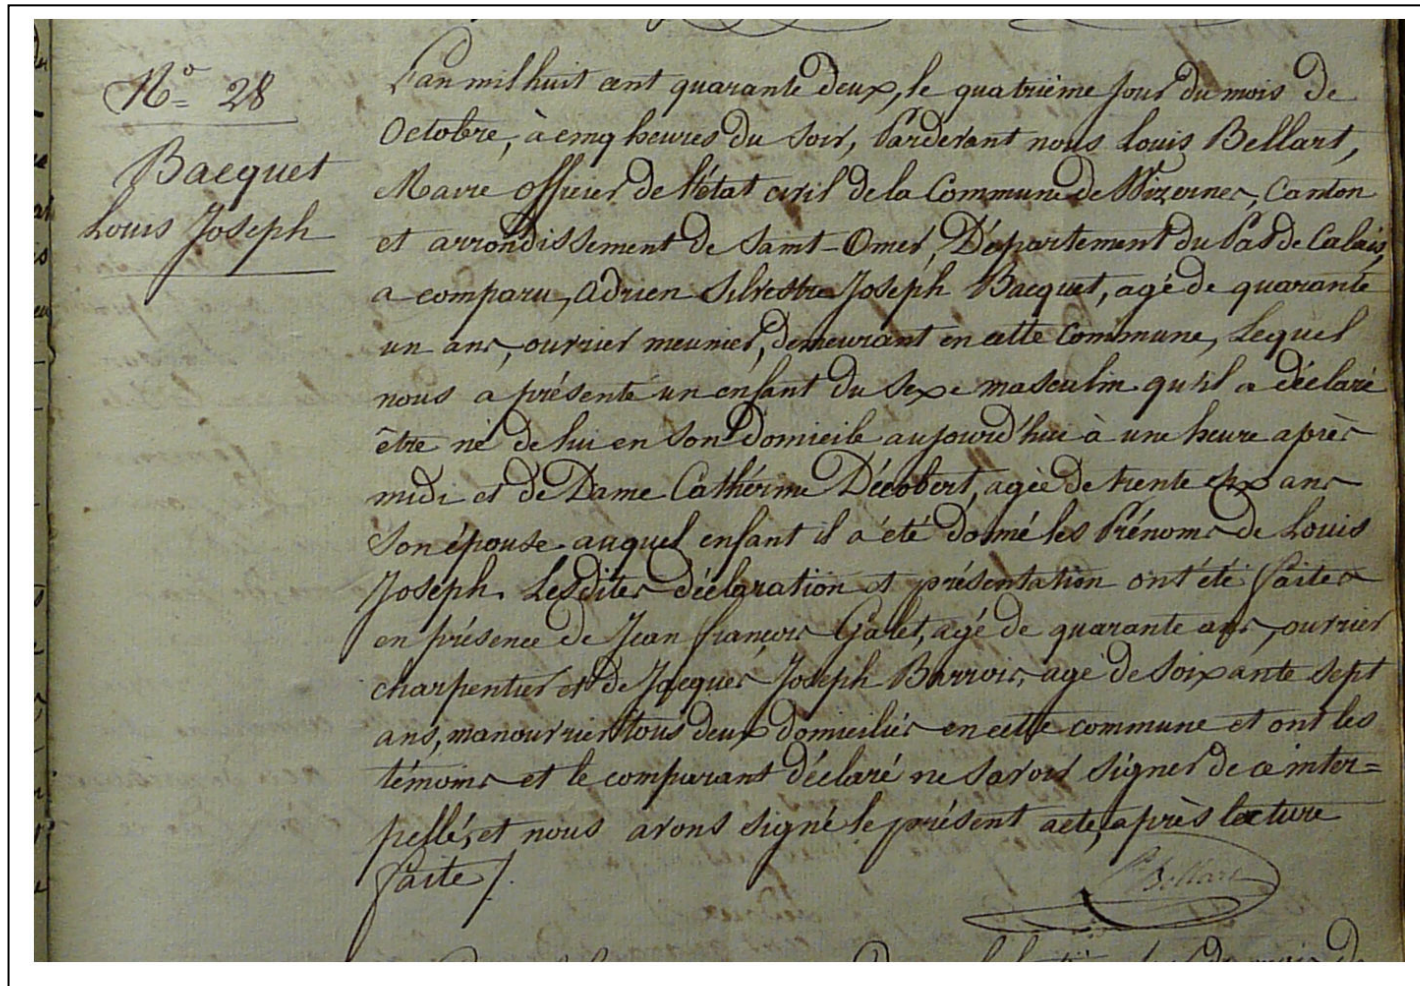 N° 28
Bacquet
Louis Joseph
L'an mil huit cent quarante deux, le quatrième jour du mois de
Octobre, à cinq heures du soir, Pardevant nous Louis Bellart,
Maire officier de l'état civil de la Commune de Wizernes, Canton
et arrondissement de Saint-Omer, Département du Pas de Calais,
a comparu, Adrien Silvestre Joseph Bacquet, agé de quarante
un ans, ouvrier meunier, demeurant en cette Commune, Lequel
nous a présenté un enfant du sexe masculin qu'il a déclaré
être né de lui en son domicile aujourd'hui à une heure après
midi et de Dame Cathérine Décobert, agée de trente six ans
Son épouse auquel enfant il a été donné les Prénoms de Louis
Joseph. Lesdites déclaration et présentation ont été faites
en présence de Jean françois Galet, agé de quarante ans, ouvrier
charpentier et de Jacques Joseph Barrois, agé de soixante sept
ans, manouvrier tous deux domiciliés en cette commune et ont les
témoins et le comparant déclaré ne savoir signer de ce inter=
pellé, et nous avons signé le présent acte, après lecture
faite /.
Bellart